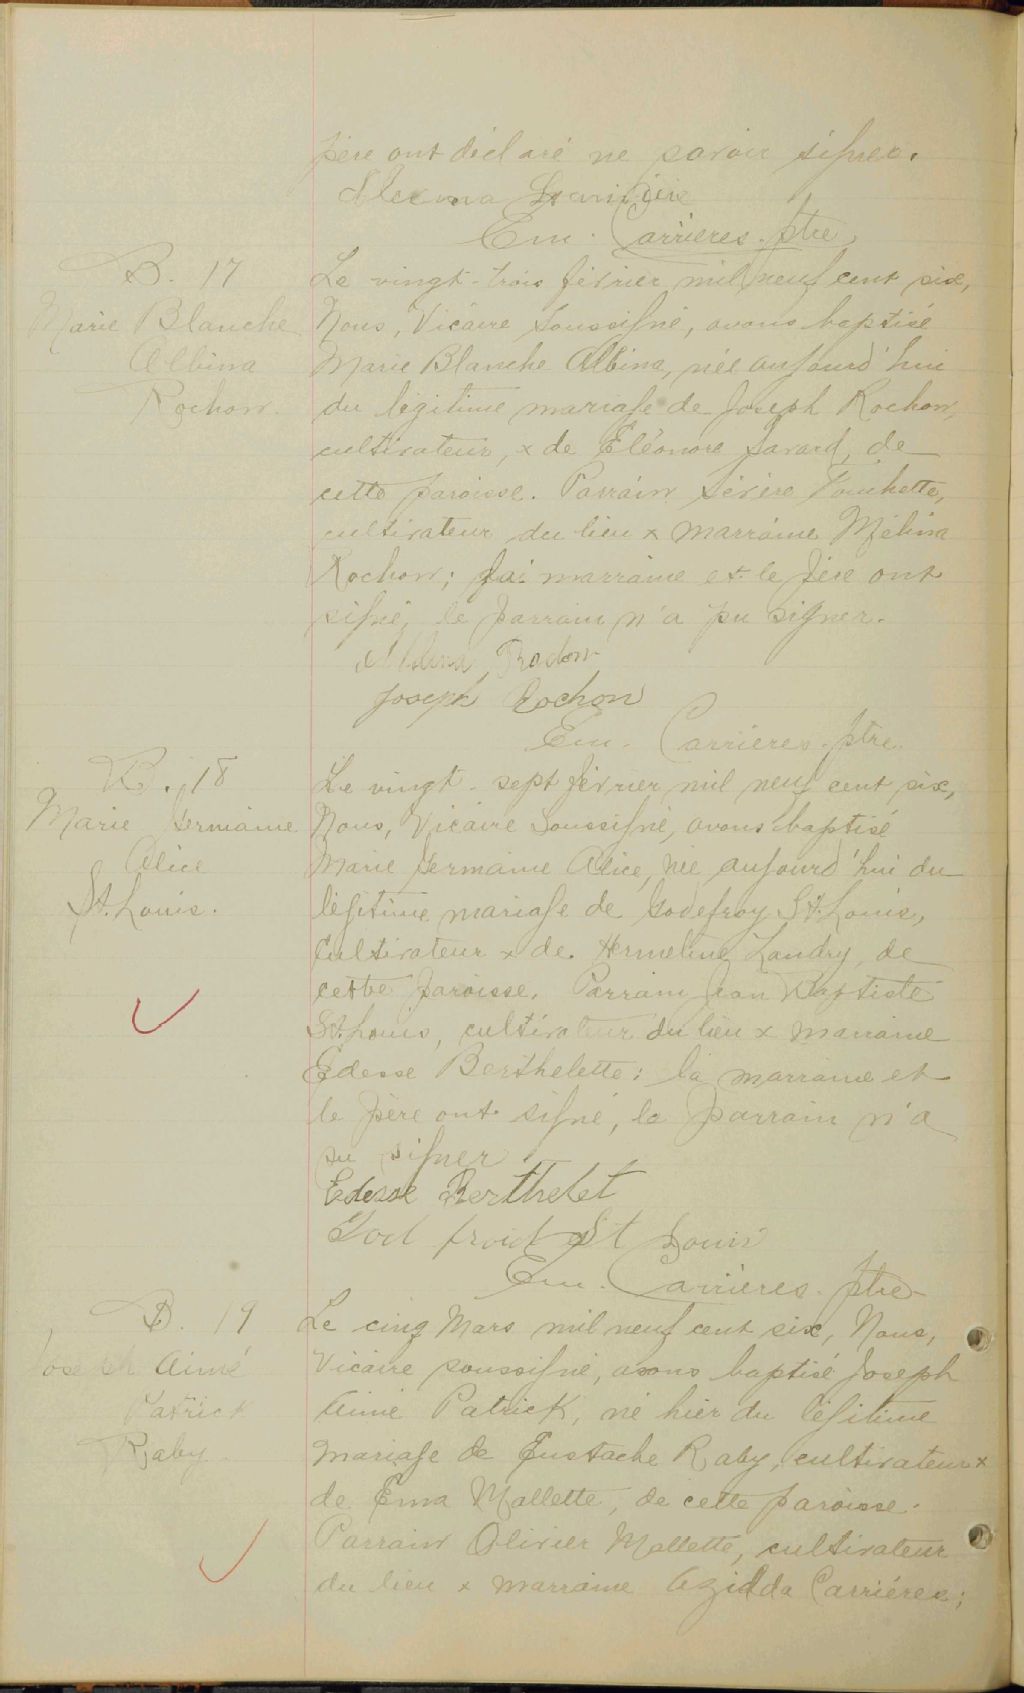 père ont déclaré ne savoir signer.
Em. Carrières. ptre
B. 17
Marie Blanche
Albina
Rochon.
Le vingt-trois février mil neuf cent six,
Nous, Vicaire soussigné, avons baptisé
Marie Blanche Albina, née aujourd'hui
du légitime mariage de Joseph Rochon,
cultivateur, x de Eléonore Savard, de
cette paroisse. Parrain Sévère Touchette,
cultivateur du lieu x marraine Mélina
Rochon; marraine et le père ont
signé, le parrain n'a pu signer.
Mélina Rochon
Joseph Rochon
Em. Carrières. ptre.
B. 18
Marie Germaine
Alice
St. Louis.
Le vingt-sept février mil neuf cent six,
Nous, Vicaire Soussigné, avons baptisé
Marie Germaine Alice, née aujourd'hui du
légitime mariage de Godefroy St. Louis,
Cultivateur x de Hermeline Landry, de
cette paroisse. Parrain Jean Baptiste
St. Louis, cultivateur du lieu x marraine
Edesse Berthelette: la marraine et
le père ont signé, le parrain n'a
su signer
Edesse Berthelet
God froid St Louis
Em. Carrières. ptre
B. 19
Joseph Aimé
Patrick
Raby.
Le cinq Mars mil neuf cent six, Nous,
Vicaire soussigné, avons baptisé Joseph
Aimé Patrick, né hier du légitime
mariage de Eustache Raby, cultivateur x
de Ema Mallette, de cette paroisse.
Parrain Olivier Mallette, cultivateur
du lieu x marraine Azilda Carrières;